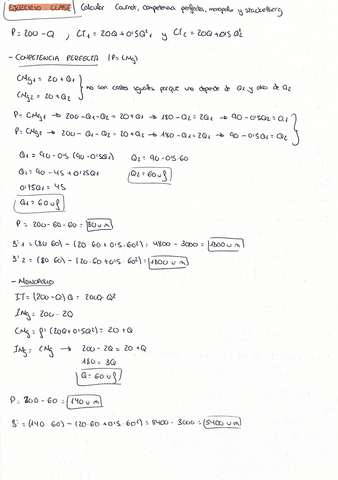 EJERCICIO CLASE Calcular Cournot, competencia perfecta, monopolio y stackelberg
P = 200 - Q ; CT₁ = 20Q + 0'5Q²₁ y CT₂ = 20Q + 0'5Q²₂
- COMPETENCIA PERFECTA (P = CMg)
CMg₁ = 20 + Q₁
CMg₂ = 20 + Q₂
} no son costes iguales porque uno depende de Q₁ y otro de Q₂
P = CMg₁ → 200 - Q₁ - Q₂ = 20 + Q₁ → 180 - Q₂ = 2Q₁ → 90 - 0'5Q₂ = Q₁
P = CMg₂ → 200 - Q₁ - Q₂ = 20 + Q₂ → 180 - Q₁ = 2Q₂ → 90 - 0'5Q₁ = Q₂
Q₁ = 90 - 0'5 (90 - 0'5Q₁) Q₂ = 90 - 0'5·60
Q₁ = 90 - 45 + 0'25Q₁ Q₂ = 60 uf
0'75Q₁ = 45
Q₁ = 60 uf
P = 200 - 60 - 60 = 80 u m
B' 1 = (80·60) - (20·60 + 0'5·60²) = 4800 - 3000 = 1800 u m
B' 2 = (80·60) - (20·60 + 0'5·60²) = 1800 u m
- MONOPOLIO
IT = (200 - Q) Q = 200Q - Q²
IMg = 200 - 2Q
CMg = f' (20Q + 0'5Q²) = 20 + Q
IMg = CMg → 200 - 2Q = 20 + Q
180 = 3Q
Q = 60 uf
P = 200 - 60 = 140 u m
B' = (140·60) - (20·60 + 0'5·60²) = 8400 - 3000 = 5400 u m